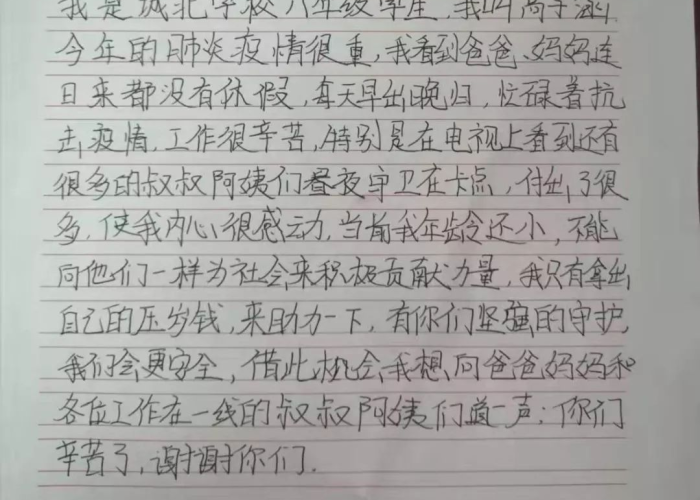 我是城北学校八年级学生，我叫高子涵，
今年的肺炎疫情很重，我看到爸爸、妈妈连
日来都没有休假，每天早出晚归，忙碌着抗
击疫情，工作很辛苦，特别是在电视上看到还有
很多的叔叔阿姨们昼夜守卫在卡点，付出了很
多，使我内心很感动，当前我年龄还小，不能
向他们一样为社会来积极贡献力量，我只有拿出
自己的压岁钱，来助力一下，有你们坚强的守护，
我们会更安全，借此机会，我想向爸爸妈妈和
各位工作在一线的叔叔阿姨们道一声：你们
辛苦了，谢谢你们．